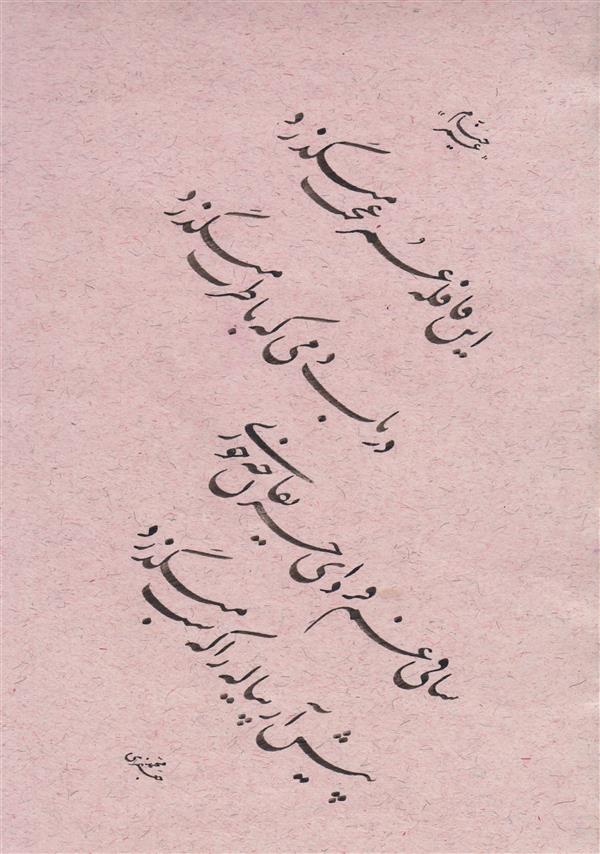 عمر خیام
این قافله عُمر عجب میگذرد
دریاب دمی که با طرب میگذرد
ساقی غم فردای حریفان چه خوری
پیش آر پیاله را که شب میگذرد
جعفری